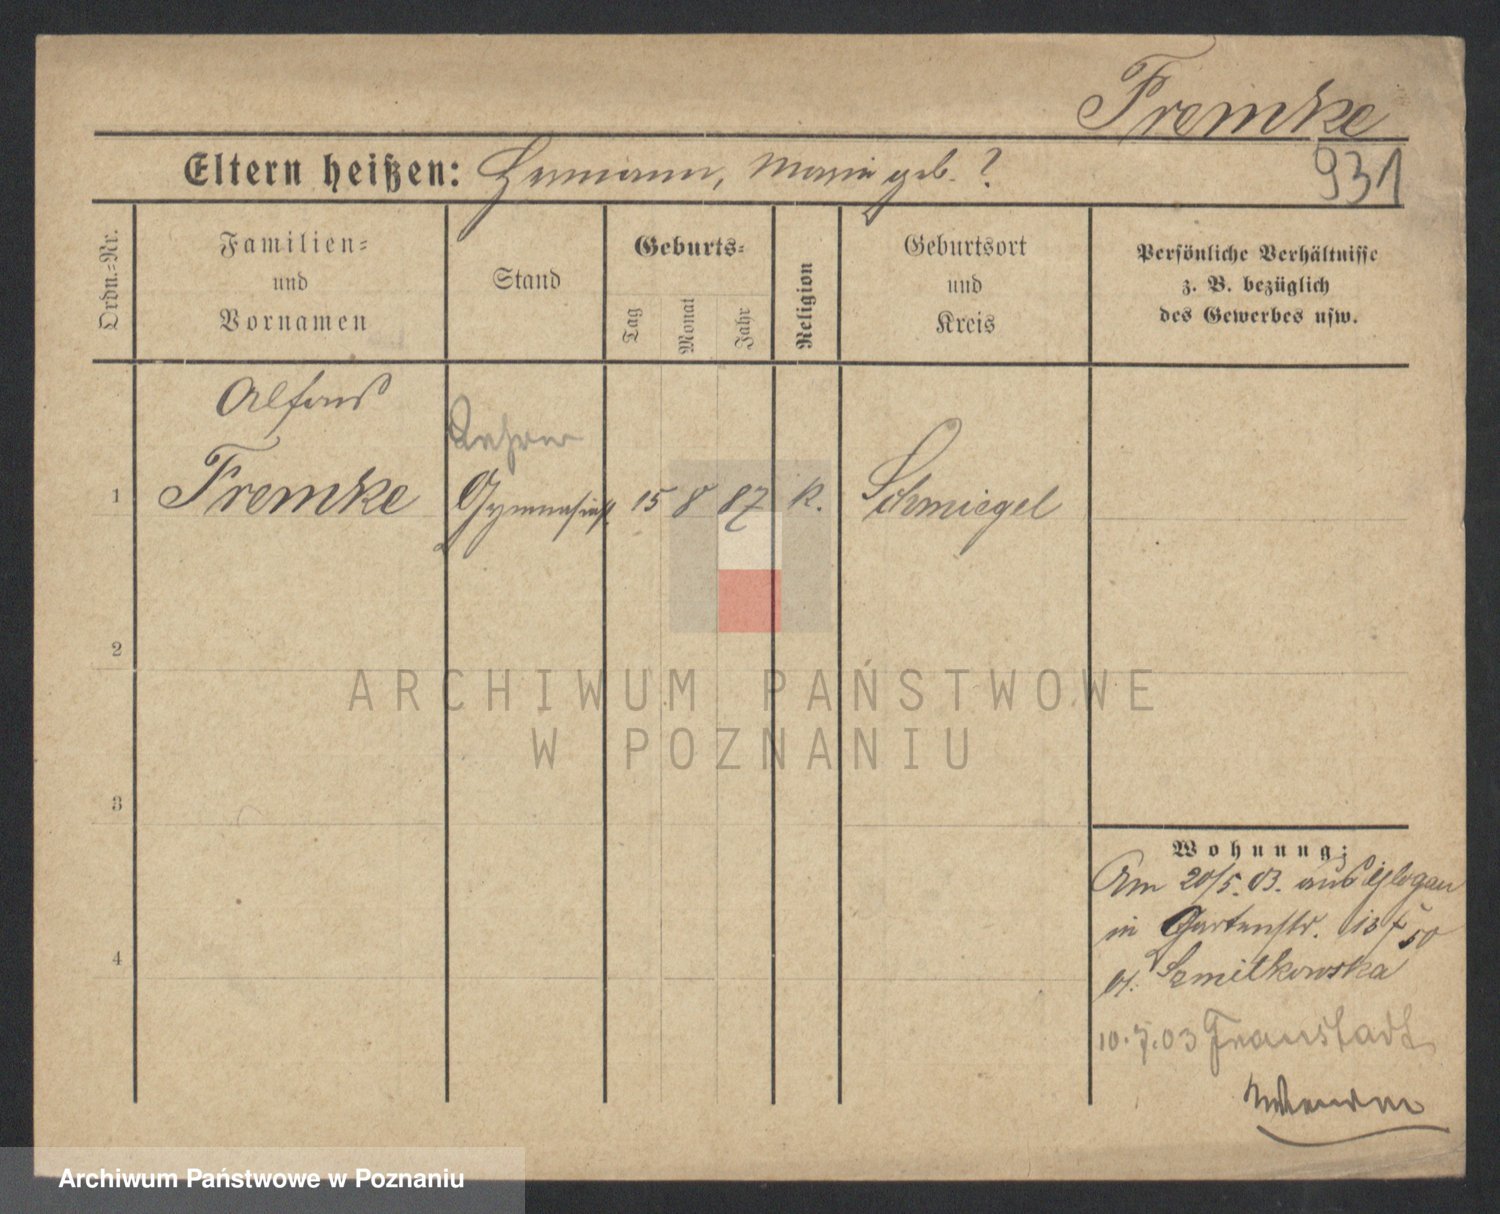 Fromke
931
Eltern heißen: Hermann, Marie geb. ?
Ordn.=Nr.
Familien=
und
Vornamen
Stand
Geburts=
Tag
Monat
Jahr
Religion
Geburtsort
und
Kreis
Persönliche Verhältnisse
z. B. bezüglich
des Gewerbes usw.
Alfons
Lehrer
1 Fromke Gymnasiast 15 8 87 K. Schmiegel
2
3
4
ARCHIWUM PAŃSTWOWE
W POZNANIU
Wohnung:
Am 20/5. 03. aus Glogau
in Gartenstr. 13
Szmitkowska
10.7.03 Fraustadt
Archiwum Państwowe w Poznaniu